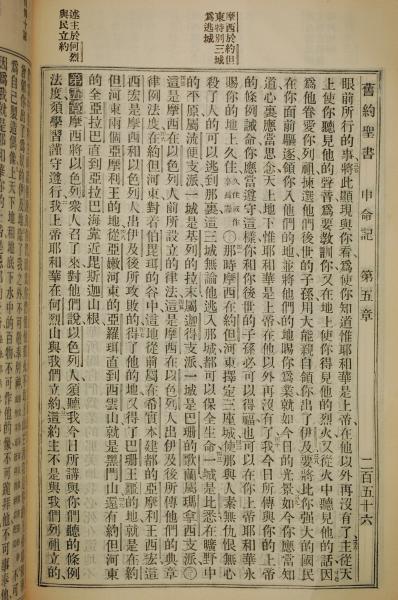 舊約聖書 申命記 第五章 二百五十六
眼前所行的事將此顯現與你看爲使你知道惟耶和華是上帝在他以外再沒有了主從天
上使你聽見他的聲音爲要教訓你又在地上使你得見他的烈火又從火中聽見他的話因
爲他眷愛你列祖揀選他們後世的子孫用大能親自領你出了伊及要將比你强大的國民
在你面前驅逐領你入他們的地並將他們的地賜你爲業就如今日的光景如今你應當知
道心裏應當思念天上地下惟耶和華是上帝在他以外再沒有了我今日所傳與你的上帝
的條例誡命你應當遵守這樣你和你後世的子孫必可以得福也可以在你上帝耶和華永
賜你的地上久住〇那時摩西在約但河東擇定三座城使那與人素無仇恨無心
殺了人的可以逃到那裏這三城無論他逃入那城都可以保全生命一城是比悉在曠野中
的平原屬流便支派一城是基列的拉末屬迦得支派一城是巴珊的歌蘭屬瑪拿西支派〇
這是摩西在以色列人前所設立的律法這是摩西在以色列人出伊及後所傳他們的典章
律例法度在約但河東對着伯毘珥的谷中這地從前屬在希實本建都的亞摩利王西宏這
西宏是摩西和以色列人出伊及後所攻敗的得了他的地又得了巴珊王噩的地就是在約
但河東兩個亞摩利王的地從亞嫩河東的亞羅珥直到西雲山就是黑門山還有約但河東
的全亞拉巴直到亞拉巴海靠近毘斯迦山根
第五章摩西將以色列衆人召了來對他們說以色列人須聽我今日所講與你們聽的條例
法度須學習謹守遵行我上帝耶和華在何烈山與我們立約這約主不是與我們列祖立的
摩西於約但
東特別三城
爲逃城
述主於何烈
與民立約